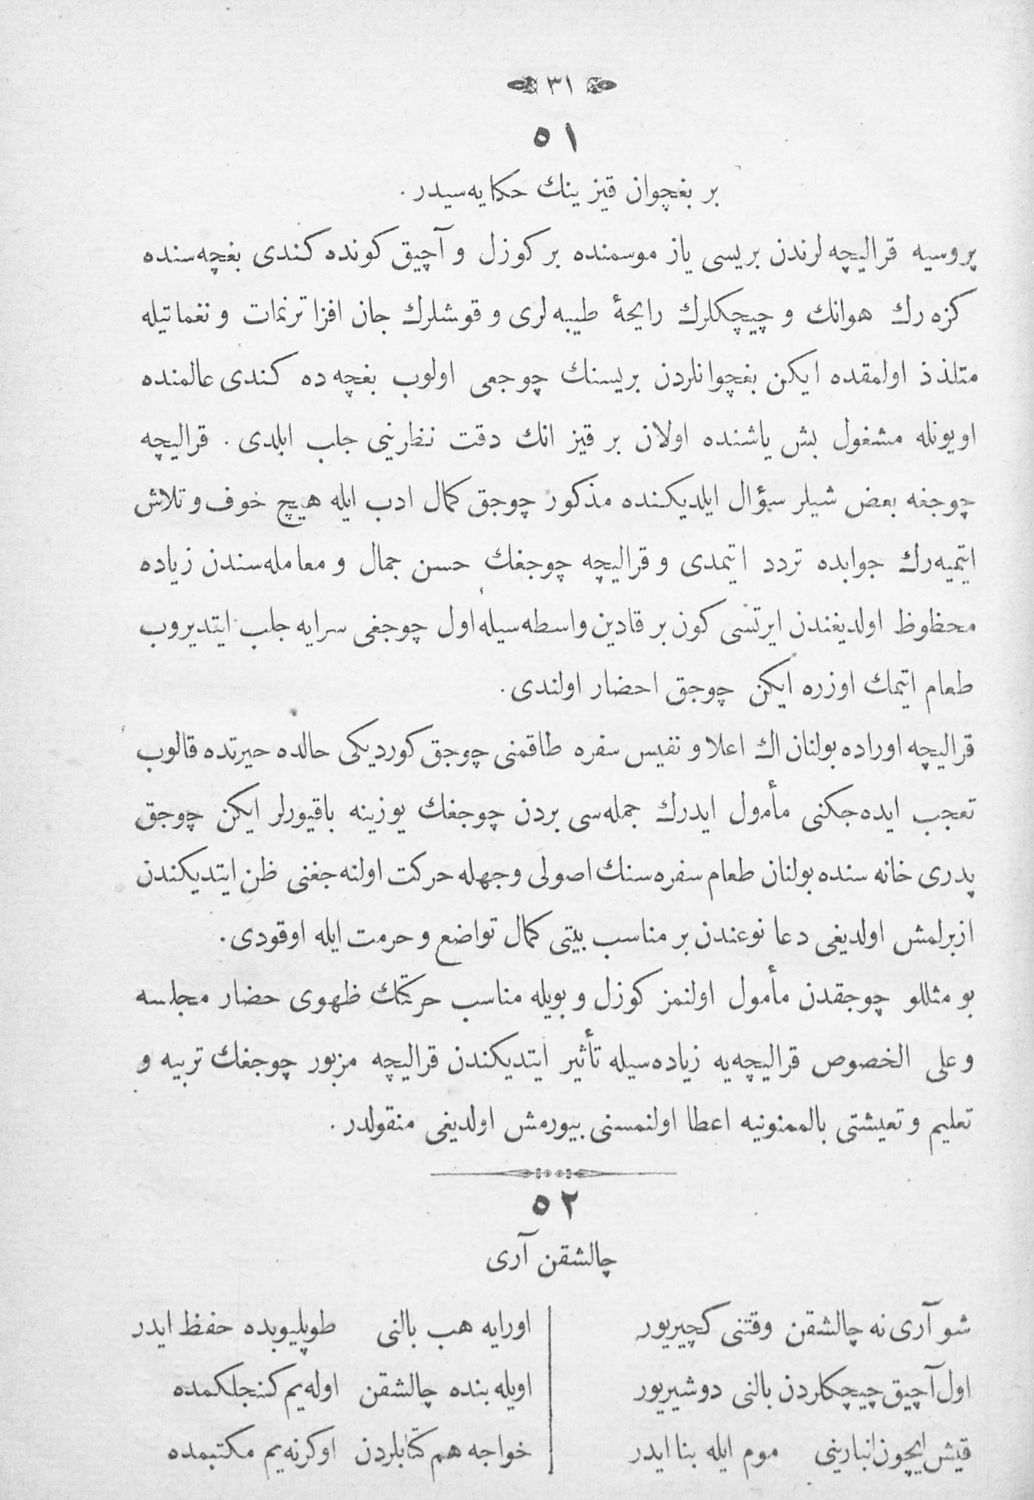 ٣١
٥١
بر بغچوان قیز ینك حكایه‌سیدر .
پروسیه قرالیچه‌لرندن بریسی یاز موسمنده بر كوزل و آچیق كونده كندی بغچه‌سنده
كزه‌رك هوانك و چیچكلرك رایحهٔ طیبه‌لری و قوشلرك جان افزا ترنمات و نغماتیله
متلذذ اولمقده ایكن بغچوانلردن بریسنك چوجغی اولوب بغچه‌ده كندی عالمنده
اویونله مشغول بش یاشنده اولان بر قیز انك دقت نظرینی جلب ایلدی . قرالیچه
چوجغه بعض شیلر سؤال ایلدیكنده مذكور چوجق كمال ادب ایله هیچ خوف و تلاش
ایتمیه‌رك جوابده تردد ایتمدی و قرالیچه چوجغك حسن جمال و معامله‌سندن زیاده
محظوظ اولدیغندن ایرتسی كون بر قادین واسطه‌سیله اول چوجغی سرایه جلب ایتدیروب
طعام ایتمك اوزره ایكن چوجق احضار اولندی .
قرالیچه اوراده بولنان اك اعلا و نفیس سفره طاقمنی چوجق كوردیكی حالده حیرتده قالوب
تعجب ایده‌جكنی مأمول ایدرك جمله‌سی بردن چوجغك یوزینه باقیورلر ایكن چوجق
پدری خانه سنده بولنان طعام سفره‌سنك اصولی وجهله حركت اولنه‌جغنی ظن ایتدیكندن
ازبرلمش اولدیغی دعا نوعندن بر مناسب بیتی كمال تواضع و حرمت ایله اوقودی .
بو مثللو چوجقدن مأمول اولنمز كوزل و بویله مناسب حركتك ظهوی حضار مجلسه
وعلی الخصوص قرالیچه‌یه زیاده‌سیله تأثیر ایتدیكندن قرالیچه مزبور چوجغك تربیه و
تعلیم و تعیشتی بالممنونیه اعطا اولنمسنی بیورمش اولدیغی منقولدر .
٥٢
چالشقن آری
شو آری نه چالشقن وقتنی كچیریور
اول آچیق چیچكلردن بالنی دوشیریور
قیش ایچون انبارینی موم ایله بنا ایدر
اورایه هب بالنی طوپلیوبده حفظ ایدر
اویله بنده چالشقن اوله‌یم كنجلكمده
خواجه هم كتابلردن اوكرنه‌یم مكتبمده